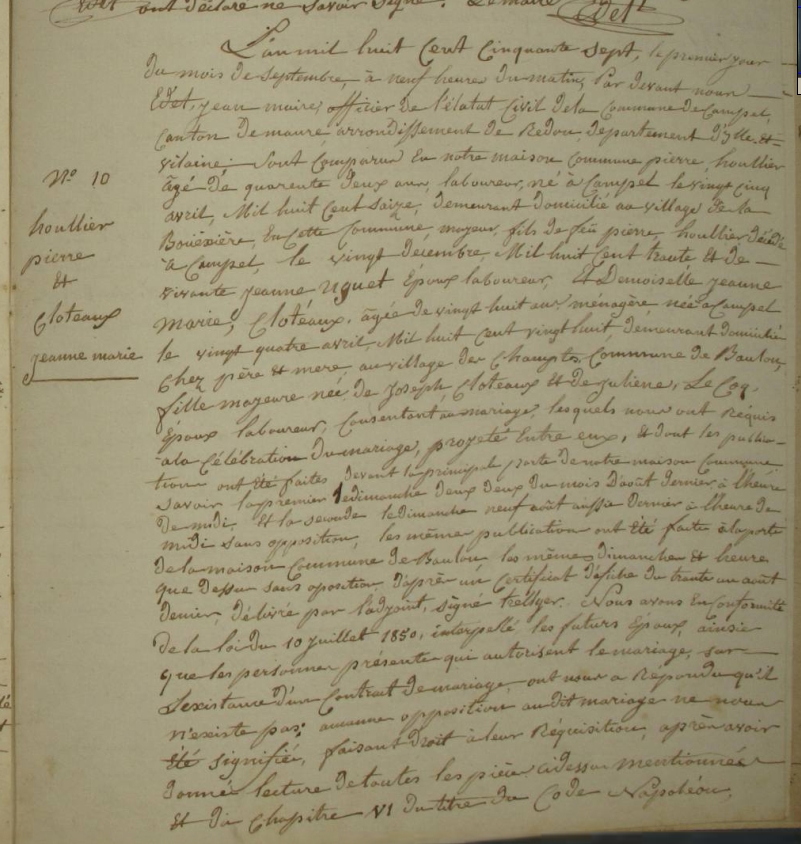 ont déclaré ne savoir signé. Le maire Edet
L'an mil huit Cent Cinquante sept, le premier jour
du mois de Septembre, à neuf heure du matin, Par devant nous
Edet, jean maire, officier de l'état Civil de la Commune de Campel,
Canton de maure arrondissement de Redon Departement d'Ille-et-
vilaine; Sont Comparus En notre maison Commune pierre houllier
N° 10
âgé de quarente deux ans, laboureur, né à Campel le vingt cinq
avril, Mil huit Cent Saize, demeurant domicilié au village de la
houllier
pierre
et
Cloteaux
jeanne marie
Bouëxière, En cette Commune, majeur, fils de feu pierre, houllier décédé
à Campel, le vingt decembre, Mil huit Cent trante Et de
vivante jeanne Uguet Epoux laboureur, Et Demoiselle jeanne
marie, Clotéaux, âgée de vingt huit ans ménagère, née à Campel
le vingt quatre avril, Mil huit Cent vingt huit, demeurant domicilié
Chez père et mere, au village des Champts, Commune de Baulon,
fille majeure née de Joseph Cloteaux Et de Juliene, Le Coq,
Epoux laboureur, Consentant au mariage, lesquels nous ont Réquis
à la Célébration du mariage, projeté Entre eux, et dont les publica-
tion ont Eté faites devant la principal porte de notre maison Commune
savoir la premier le dimanche deux deux du mois d'août dernier à l'heure
de midi, Et la seconde le dimanche neuf août aussie dernier à l'heure de
midi sans opposition, les même publication ont Eté faites à la porte
de la maison Commune de Baulon les mêmes dimanche et heure
que dessus sans oposition d'après un Certificat d'afiche du trante un août
dernier, délivré par l'adjoint, signé trellyer. Nous avons En Conformité
de la loi du 10 juillet 1850, interpellé les futurs Epoux, ainsie
que les personnes présente qui autorisent le mariage, sur
L'existance d'un Contrat de mariage, ont nous a Repondu qu'il
n'existe pas; aucunne opposition au dit mariage ne nous
Eté signifiée, faisant droit à leur Réquisition, après avoir
donné lecture de toutes les pièces cidessus mentionnée
Et du Chapitre VI du titre du Code Napoléon,